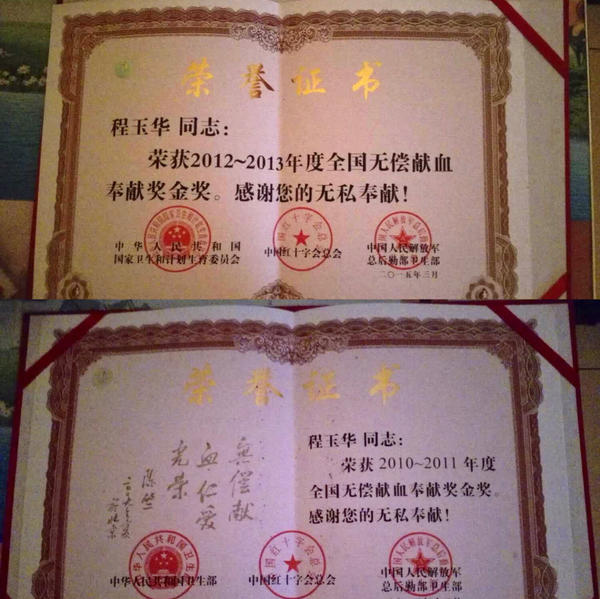 荣誉证书
程玉华 同志：
荣获2012~2013年度全国无偿献血
奉献奖金奖。感谢您的无私奉献！
中华人民共和国
国家卫生和计划生育委员会
中国红十字会总会
中国人民解放军
总后勤部卫生部
二〇一五年三月
荣誉证书
無偿献
血仁爱
光荣
程玉华 同志：
荣获 2010~2011 年度
全国无偿献血奉献奖金奖。
感谢您的无私奉献！
中华人民共和国卫生部
中国红十字会总会
中国人民解放军
总后勤部卫生部